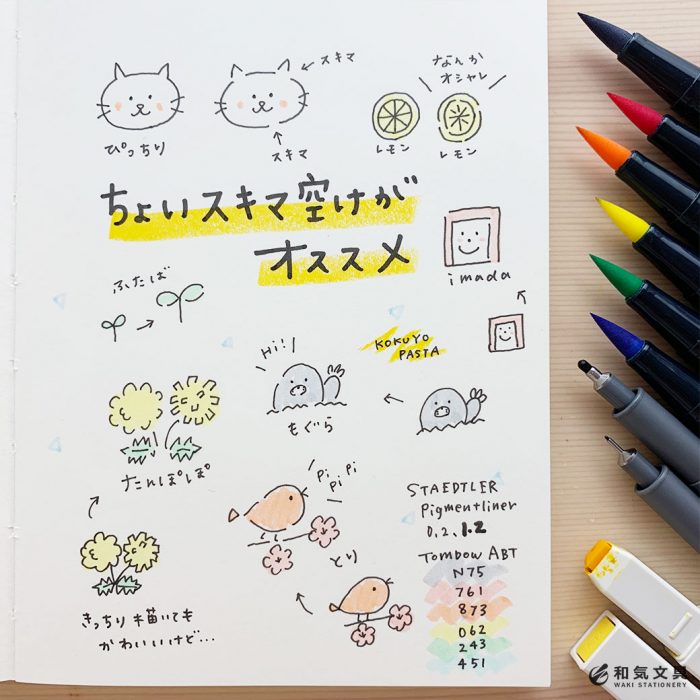 スキマ
なんか
オシャレ
ぴっちり
スキマ
レモン
レモン
ちょいスキマ空けが
オススメ
imada
ふたば
Hi!
KOKUYO
PASTA
もぐら
たんぽぽ
Pi
Pi
Pi
とり
きっちり描いても
かわいいけど…
STAEDTLER
Pigmentliner
0.2、1.2
TOMBOW ABT
N75
761
873
062
243
451
和気文具
WAKI STATIONERY